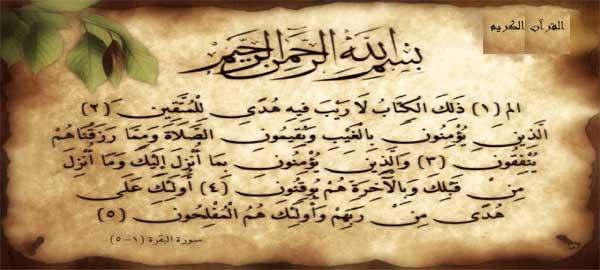 القرآن الكريم
بسم الله الرحمن الرحيم
الم (١) ذَلِكَ الْكِتَابُ لَا رَيْبَ فِيهِ هُدًى لِلْمُتَّقِينَ (٢)
الَّذِينَ يُؤْمِنُونَ بِالْغَيْبِ وَيُقِيمُونَ الصَّلَاةَ وَمِمَّا رَزَقْنَاهُمْ
يُنْفِقُونَ (٣) وَالَّذِينَ يُؤْمِنُونَ بِمَا أُنْزِلَ إِلَيْكَ وَمَا أُنْزِلَ
مِنْ قَبْلِكَ وَبِالْآخِرَةِ هُمْ يُوقِنُونَ (٤) أُولَئِكَ عَلَى
هُدًى مِنْ رَبِّهِمْ وَأُولَئِكَ هُمُ الْمُفْلِحُونَ (٥)
سورة البقرة (١-٥)